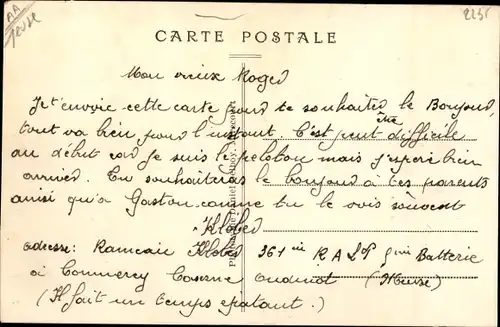 AA
Meuse
2251
CARTE POSTALE
Mon vieux Roger
Je t'envoie cette carte pour te souhaiter le Bonjour,
tout va bien pour l'instant. C'est peut être difficile
au début car je suis le peloton mais j'espère bien
arriver. Tu souhaiteras le bonjour à tes parents
ainsi qu'a Gaston comme tu le vois souvent
Kléber
adresse: Kléber 361me R A L P Batterie
à Commercy Caserne Oudinot (Meuse)
(Il fait un temps épatant.)